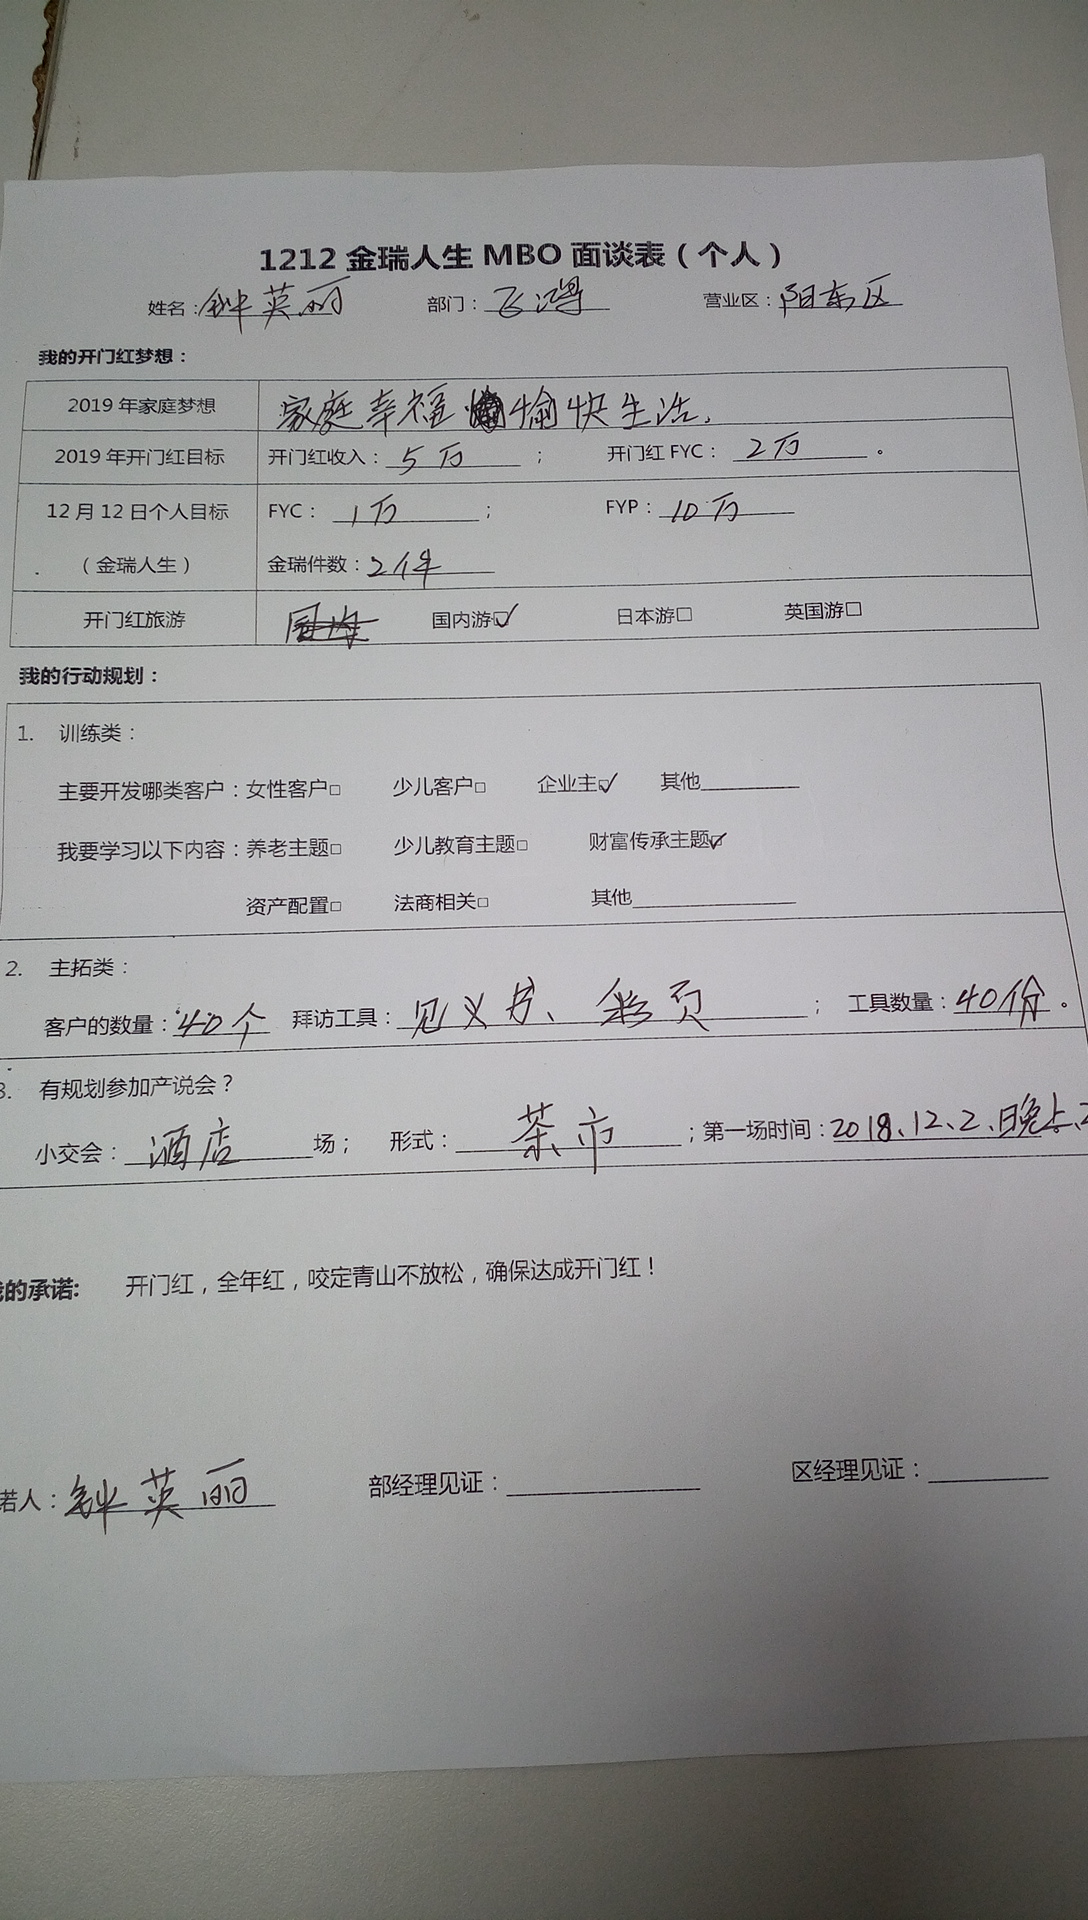 1212金瑞人生MBO面谈表（个人）
姓名：钟英丽 部门：飞鸿 营业区：阳东区
我的开门红梦想：
2019年家庭梦想 家庭幸福 愉快生活.
2019年开门红目标 开门红收入：5万； 开门红FYC：2万。
12月12日个人目标 FYC：1万； FYP：10万
（金瑞人生） 金瑞件数：2件
开门红旅游 国内游☑ 日本游□ 英国游□
我的行动规划：
1. 训练类：
主要开发哪类客户：女性客户□ 少儿客户□ 企业主☑ 其他
我要学习以下内容：养老主题□ 少儿教育主题□ 财富传承主题☑
资产配置□ 法商相关□ 其他
2. 主拓类：
客户的数量：40个 拜访工具：见义书、彩页； 工具数量：40份。
3. 有规划参加产说会？
小交会：酒店场； 形式：茶市；第一场时间：2018、12、2、日晚上
我的承诺: 开门红，全年红，咬定青山不放松，确保达成开门红！
诺人：钟英丽 部经理见证： 区经理见证：